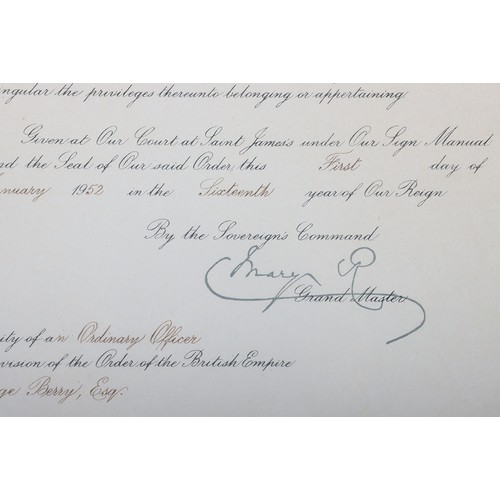 ngular the privileges thereunto belonging or appertaining
Given at Our Court at Saint James's under Our Sign Manual
nd the Seal of Our said Order, this First day of
anuary 1952 in the Sixteenth year of Our Reign
By the Sovereign's Command
Mary R
Grand Master
ity of an Ordinary Officer
vision of the Order of the British Empire
ge Berry, Esq.